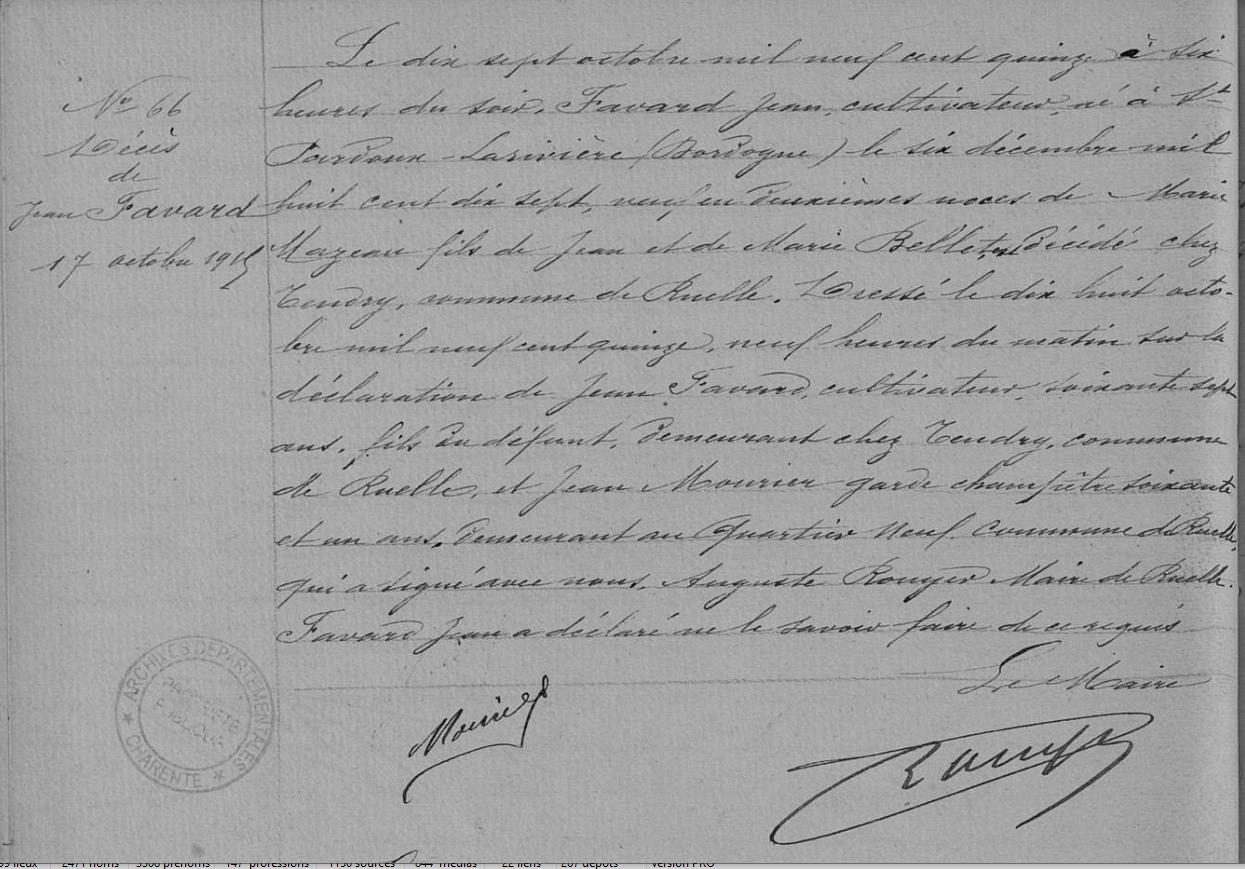 Nº 66
Décès
de
Jean Favard
17 octobre 1915
Le dix sept octobre mil neuf cent quinze à six
heures du soir, Favard Jean, cultivateur, né à St
Pardoux-Larivière (Dordogne) le six décembre mil
huit cent dix sept, veuf en deuxièmes noces de Marie
Mazeau fils de Jean et de Marie décédé chez
Tendry, commune de Ruelle. Dressé le dix huit octo-
bre mil neuf cent quinze, neuf heures du matin sur la
déclaration de Jean Favard, cultivateur, soixante sept
ans, fils du défunt, demeurant chez Tendry, commune
de Ruelle, et Jean Mourier garde champêtre soixante
et un ans, demeurant au Quartier Neuf commune de Ruelle,
qui a signé avec nous, Auguste Rouyer Maire de Ruelle.
Favard Jean a déclaré ne le savoir faire de ce requis
Le Maire
Mourier
Rouyer
ARCHIVES DEPARTEMENTALES
PROPRIÉTÉ
PUBLIQUE
* CHARENTE *